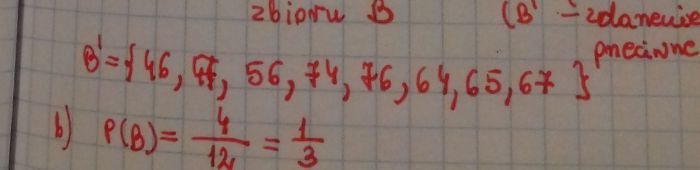 zbioru B (B' – zdarzenie
przeciwne
B' = { 46, 47, 56, 74, 76, 64, 65, 67 }
b) P(B) = 4/12 = 1/3